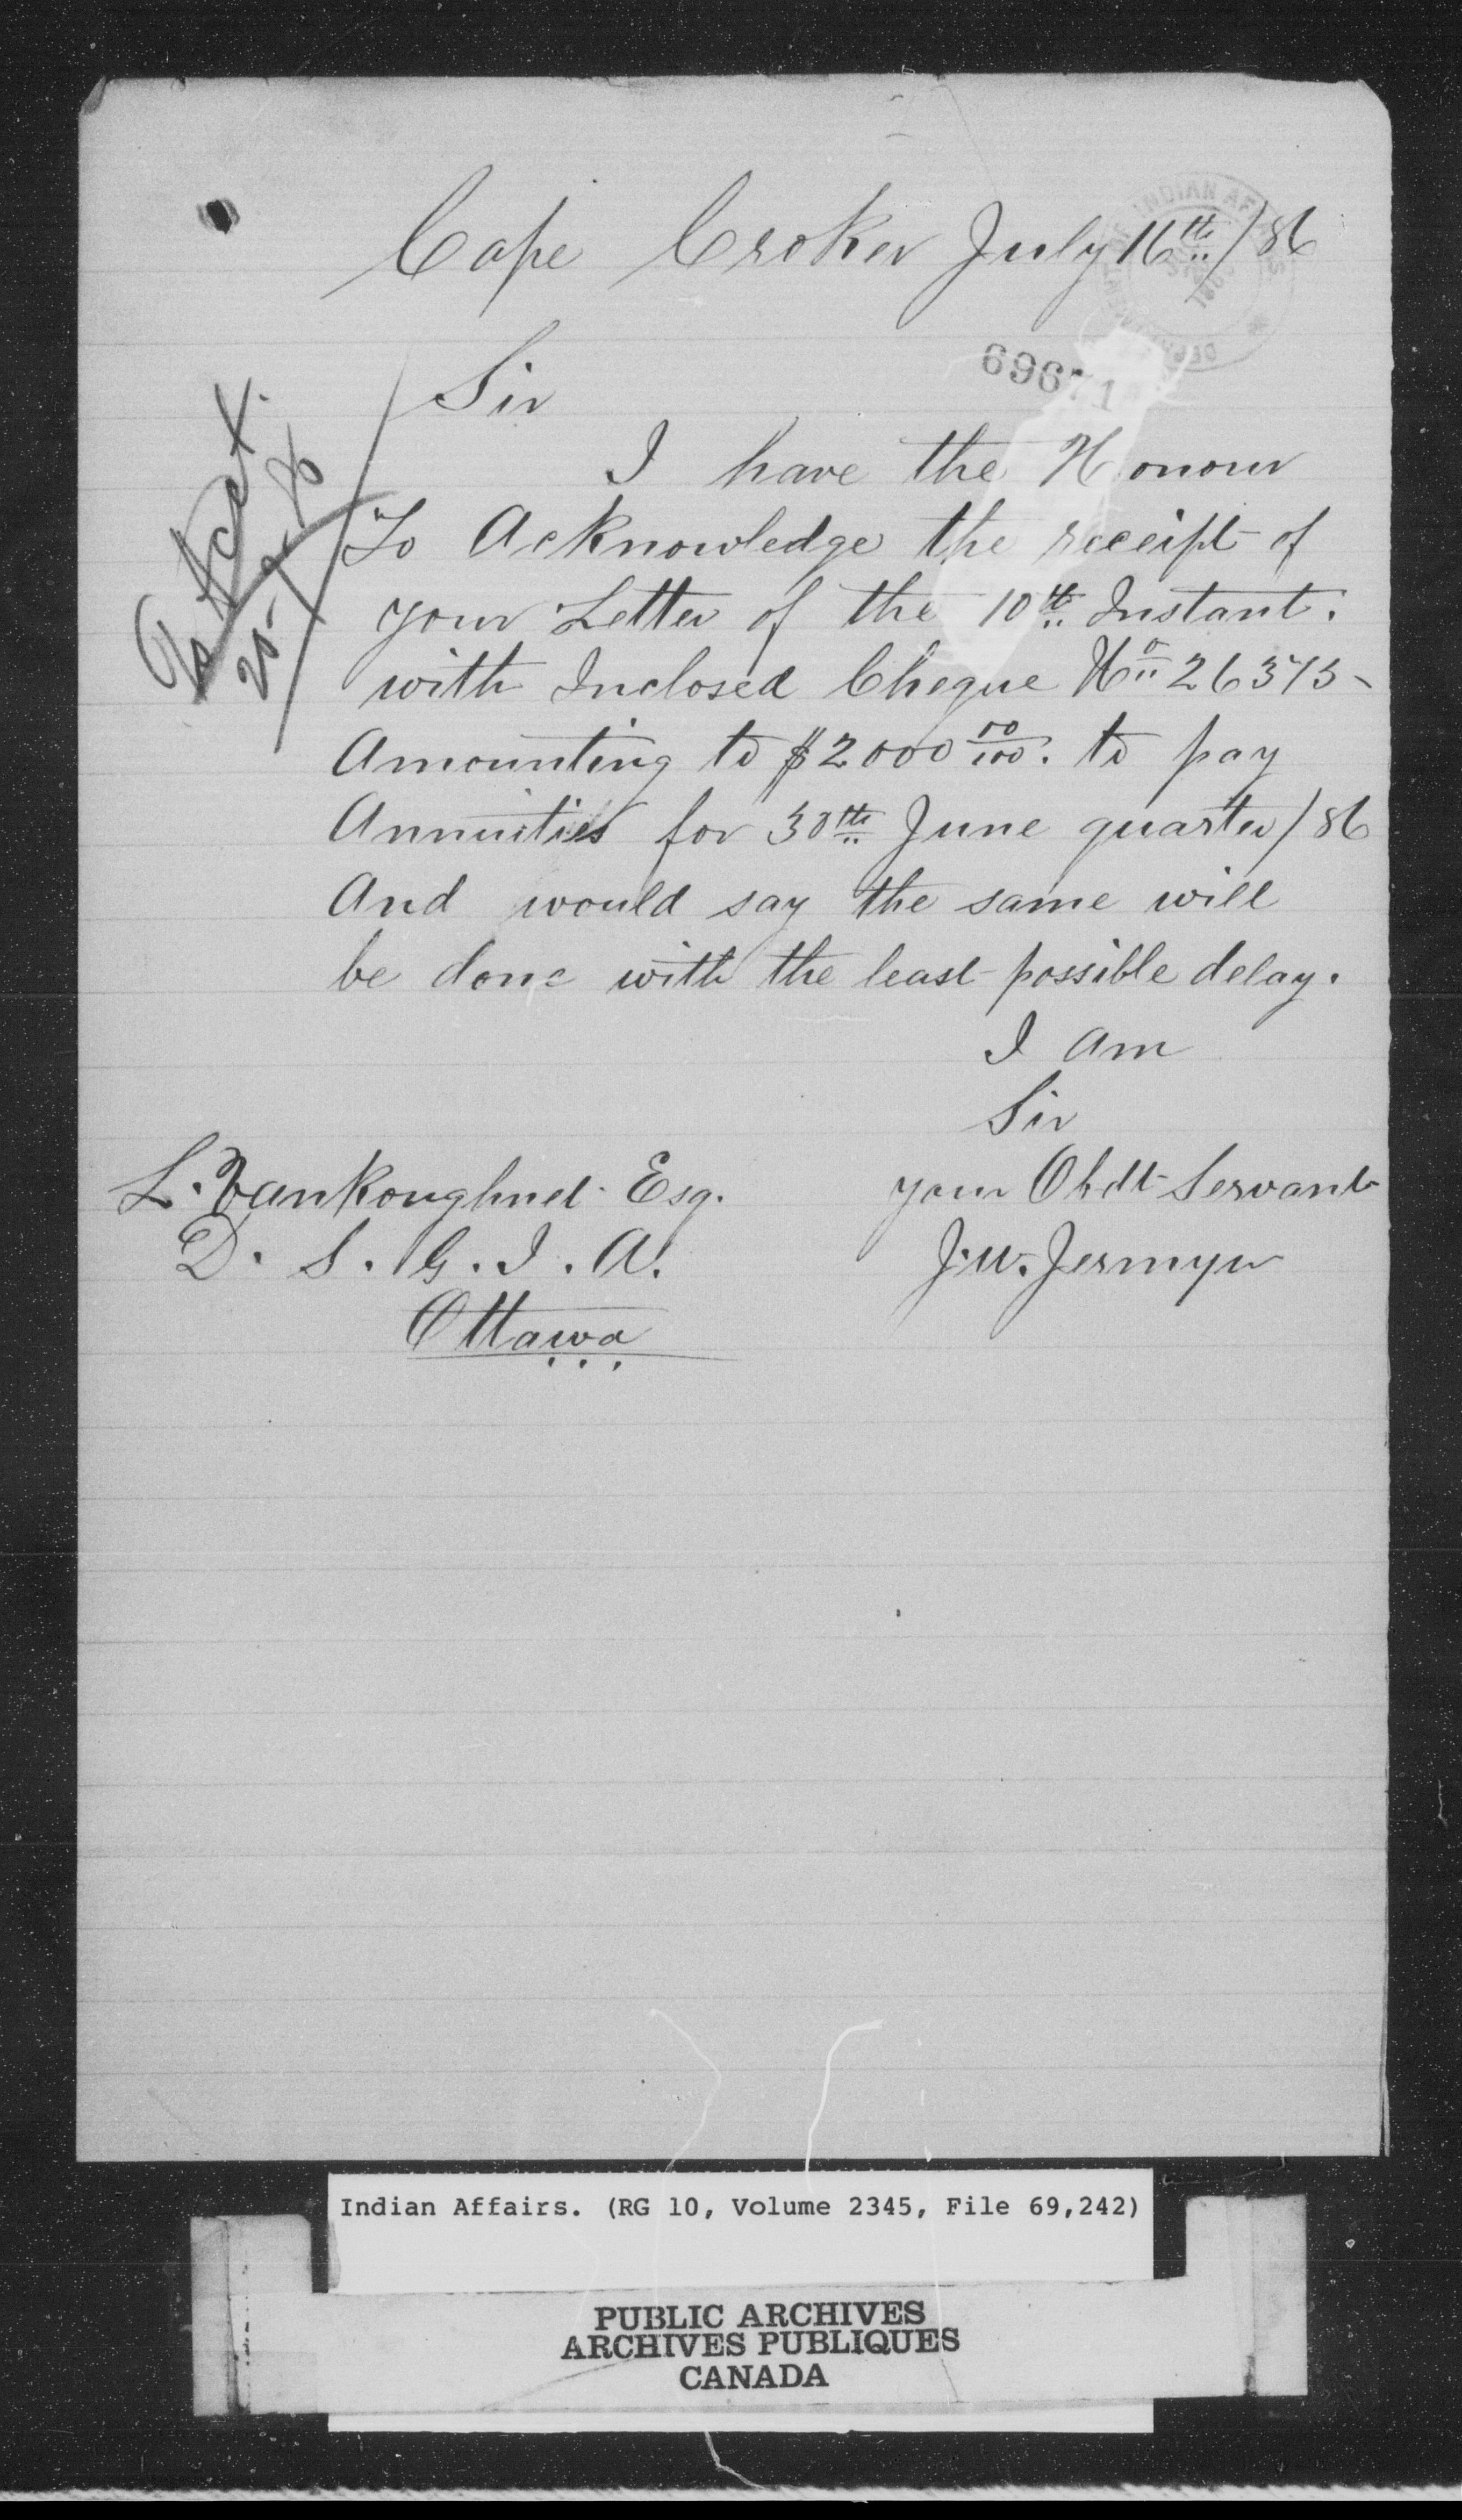 Cape Croker July 16th/86
DEPARTMENT OF INDIAN AFFAIRS.
69671
Sir
I have the Honour
To Acknowledge the receipt of
your Letter of the 10th Instant.
with Inclosed Cheque No 26373-
Amounting to $2000 00/100. to pay
Annuities for 30th June quarter/86
And would say the same will
be done with the least possible delay.
I Am
Sir
your Obdt Servant
J.W. Jermyn
L. Vankoughnet Esq.
D. S. G. I. A.
Ottawa
Indian Affairs. (RG 10, Volume 2345, File 69,242)
PUBLIC ARCHIVES
ARCHIVES PUBLIQUES
CANADA